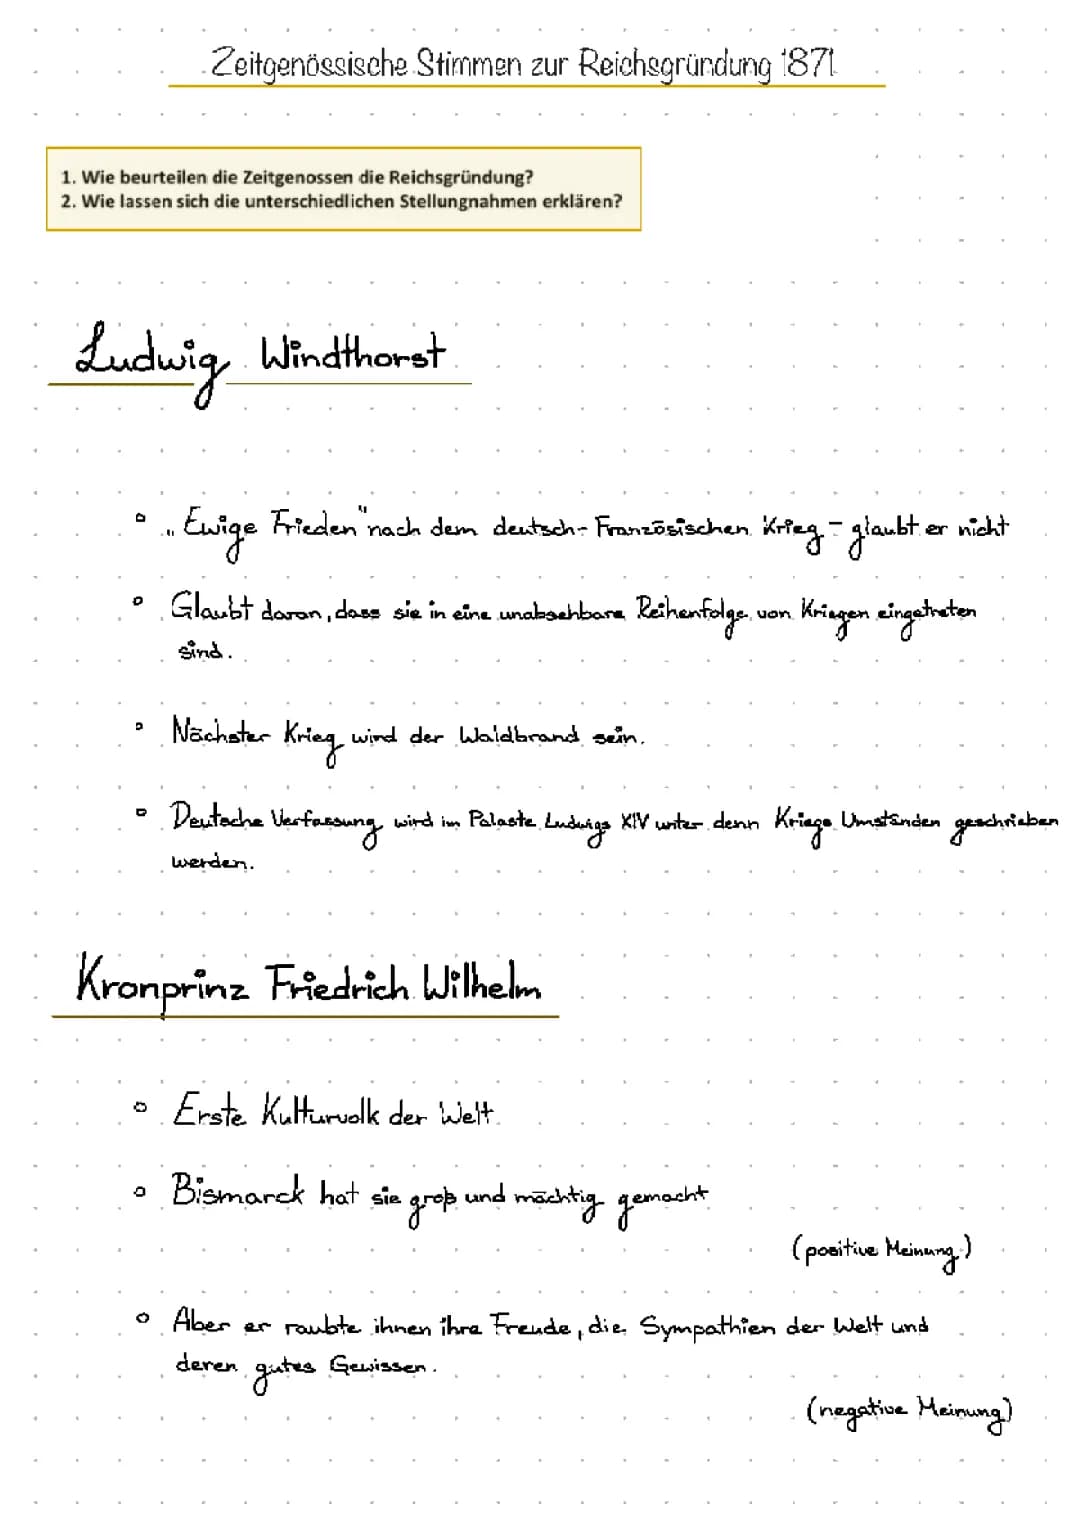 Zeitgenössische Stimmen zur Reichsgründung 1871
1. Wie beurteilen die Zeitgenossen die Reichsgründung?
2. Wie lassen sich die unterschiedlichen Stellungnahmen erklären?
Ludwig Windthorst
„Ewige Frieden" nach dem deutsch-Französischen Krieg - glaubt er nicht
Glaubt daran, dass sie in eine unabsehbare Reihenfolge von Kriegen eingetreten
sind.
Nächster Krieg wird der Waldbrand sein.
Deutsche Verfassung wird im Palaste Ludwigs XIV unter denn Kriegs Umständen geschrieben
werden.
Kronprinz Friedrich Wilhelm
Erste Kulturvolk der Welt
Bismarck hat sie groß und mächtig gemacht
(positive Meinung)
Aber er raubte ihnen ihre Freude, die Sympathien der Welt und
deren gutes Gewissen.
(negative Meinung)